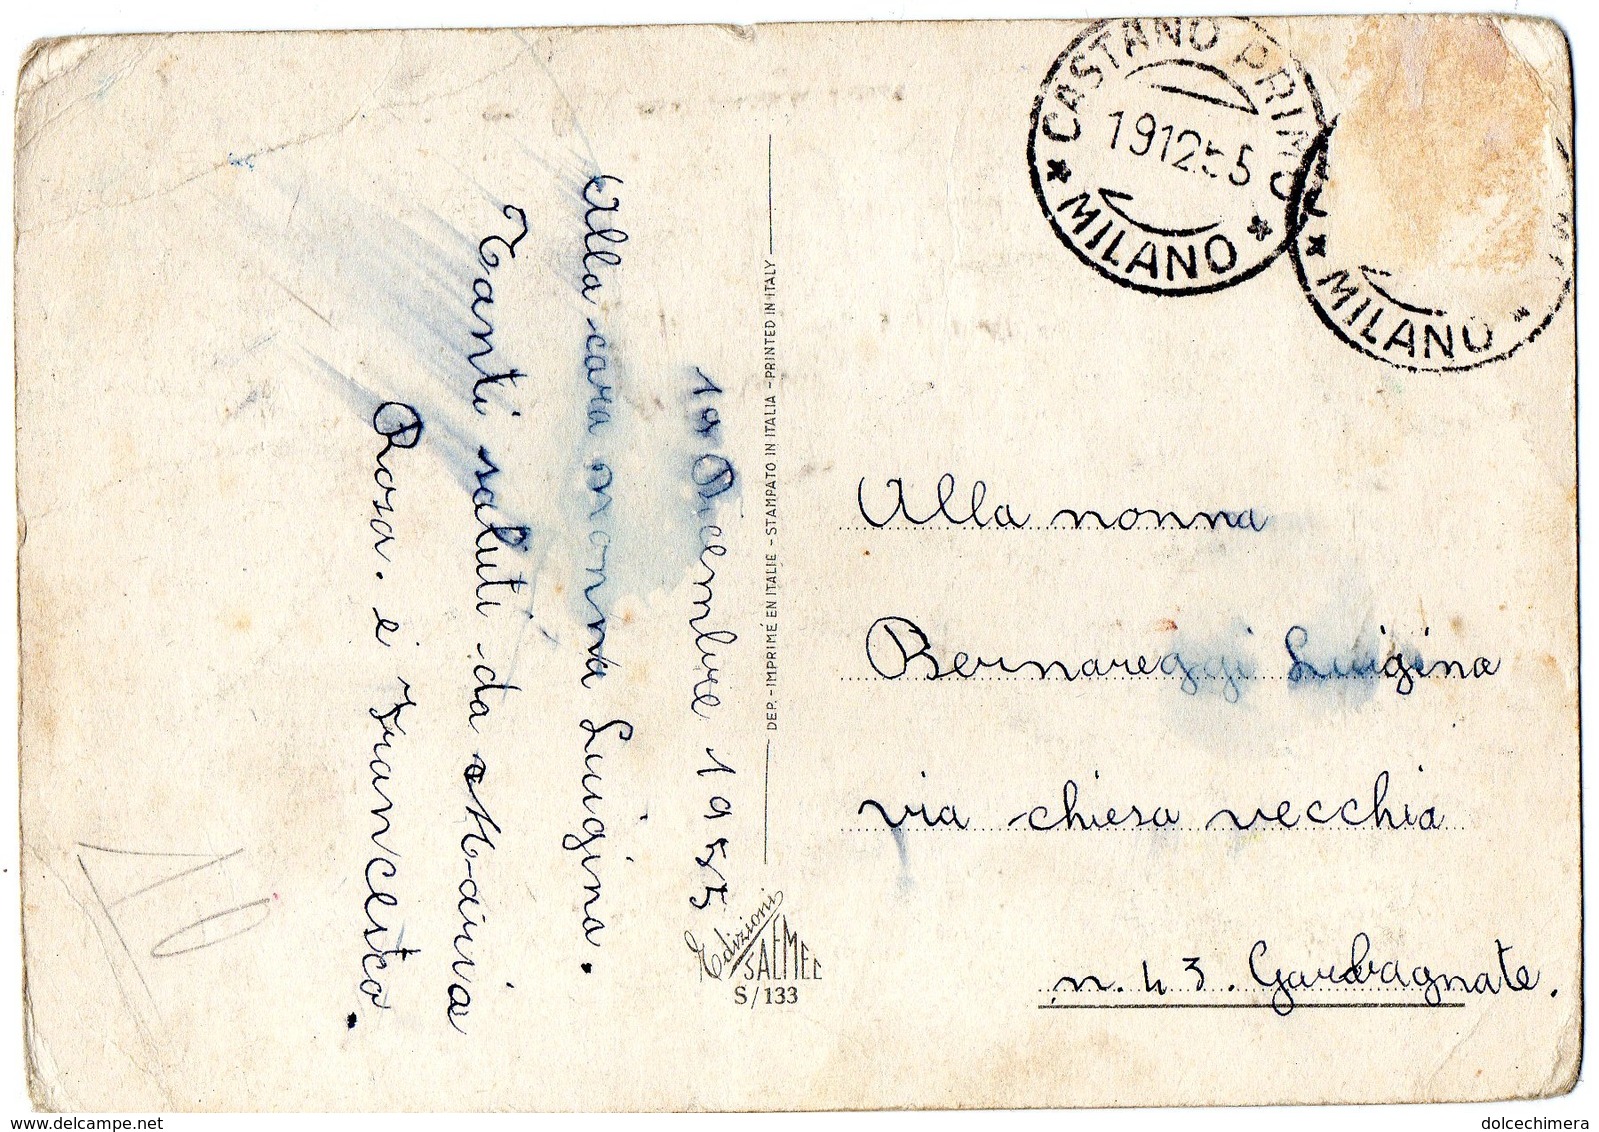 19 Dicembre 1955
Alla cara nonna Luigina.
Tanti saluti da Maria
Rosa. e Francesco.
DEP. - IMPRIMÉ EN ITALIE - STAMPATO IN ITALIA - PRINTED IN ITALY
Edizioni
SAEMEC
S/133
CASTANO PRIMO
191255
* MILANO *
* MILANO *
Alla nonna
Bernareggi Luigina
via chiesa vecchia
n. 43. Garbagnate.
delcampe.net
dolcechimera